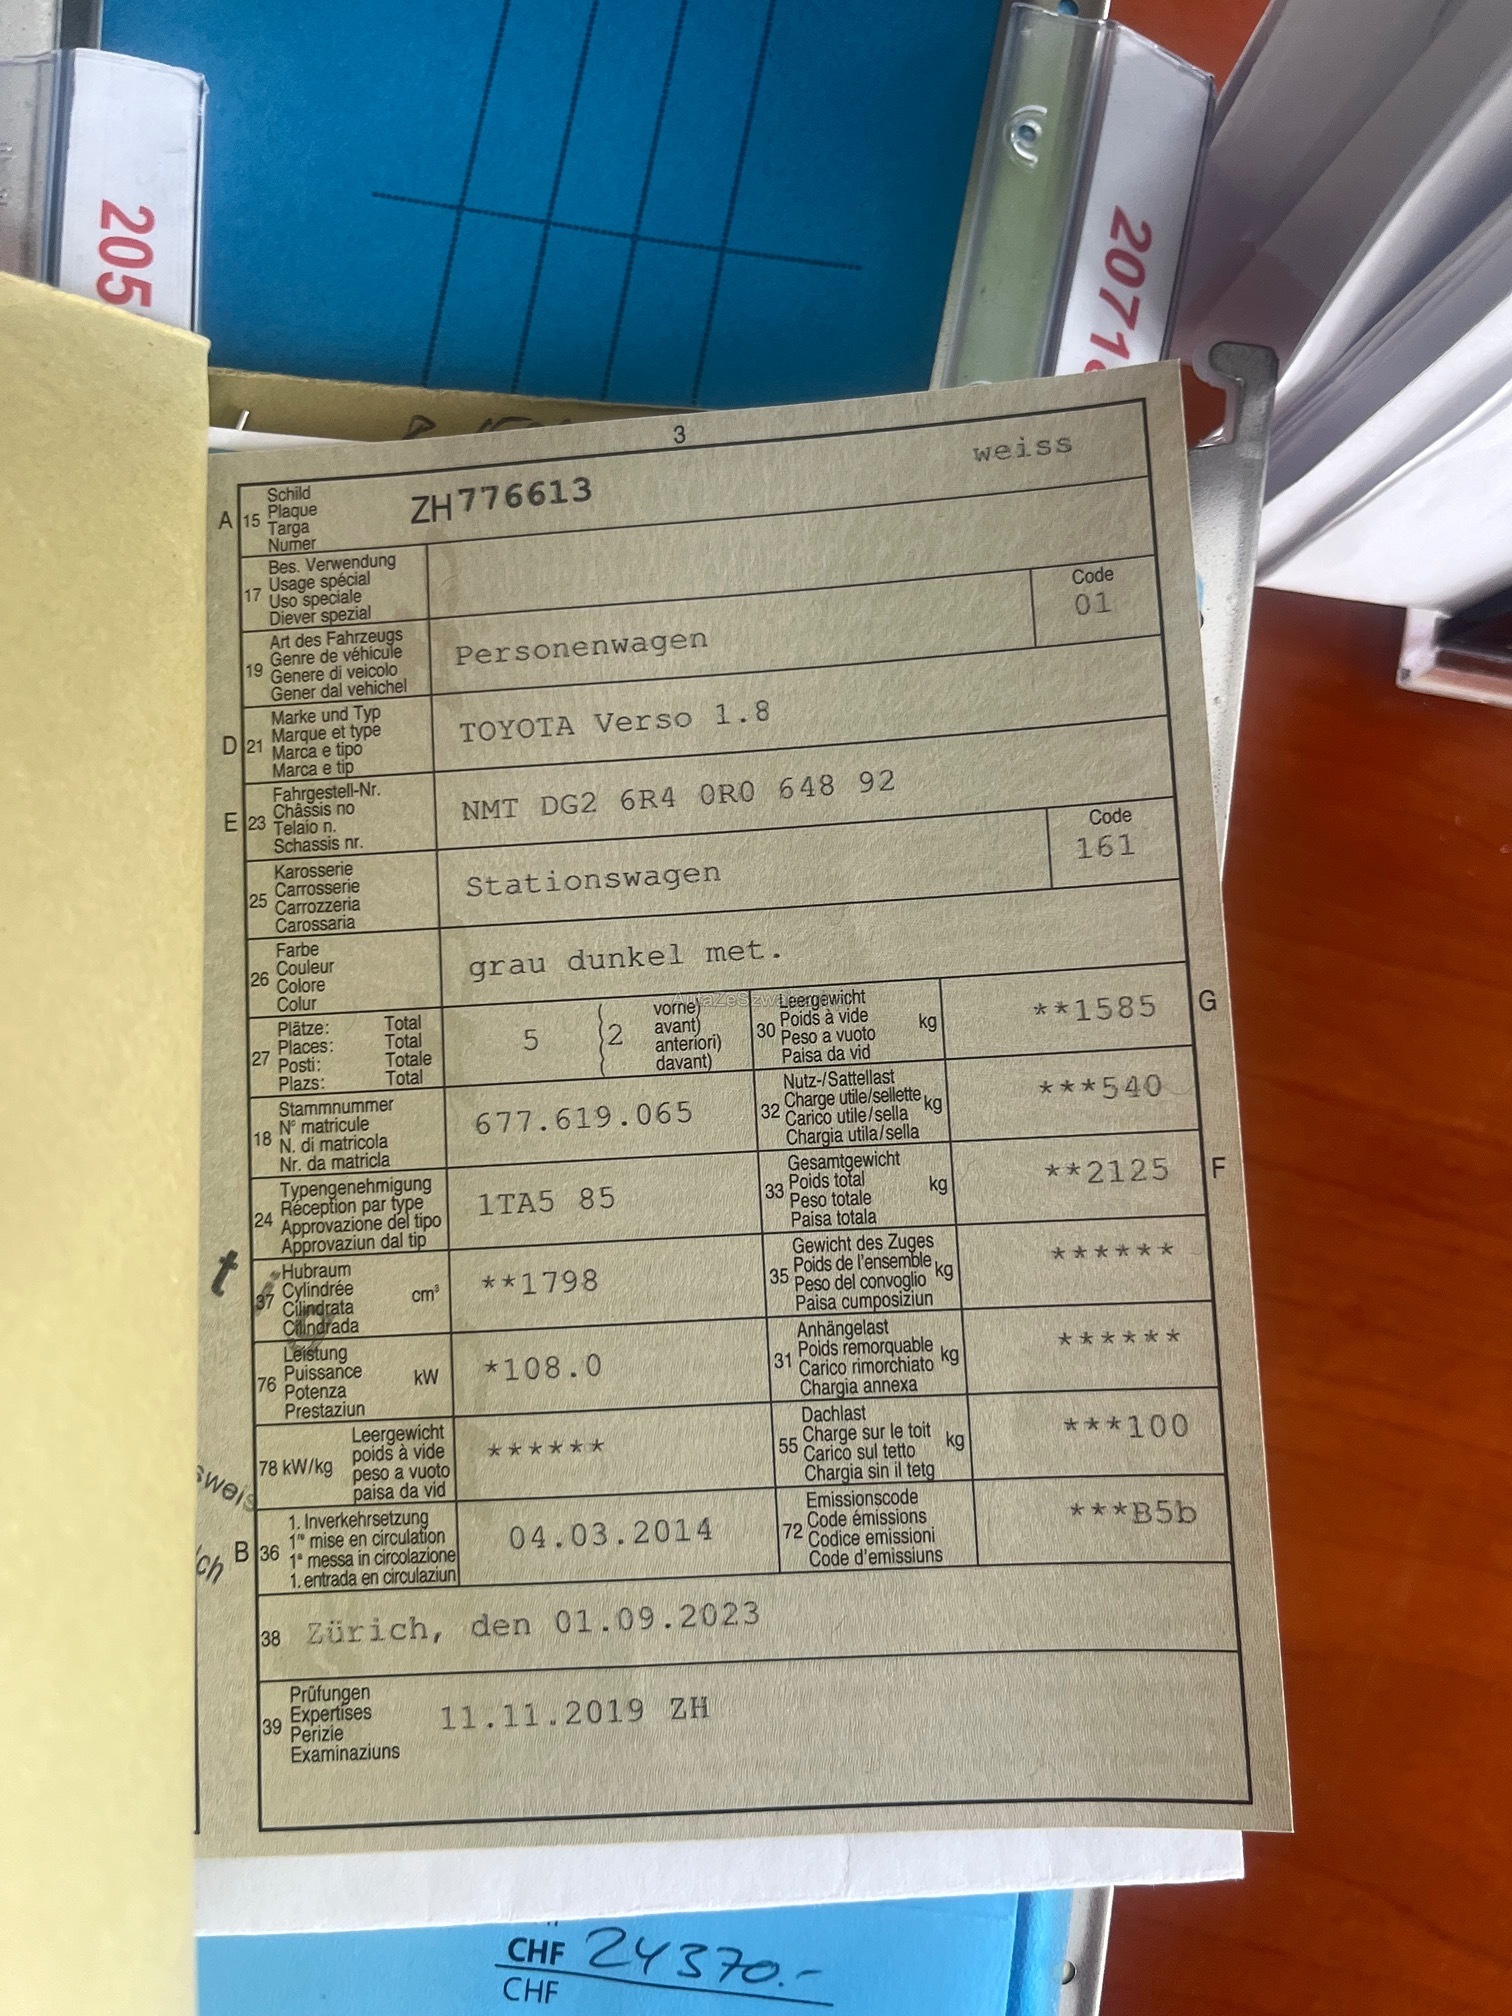 205
2071
3
weiss
A 15 Schild
Plaque
Targa
Numer
ZH 776613
17 Bes. Verwendung
Usage spécial
Uso speciale
Diever spezial
19 Art des Fahrzeugs
Genre de véhicule
Genere di veicolo
Gener dal vehichel
Personenwagen
Code
01
D 21 Marke und Typ
Marque et type
Marca e tipo
Marca e tip
TOYOTA Verso 1.8
E 23 Fahrgestell-Nr.
Châssis no
Telaio n.
Schassis nr.
NMT DG2 6R4 0R0 648 92
25 Karosserie
Carrosserie
Carrozzeria
Carossaria
Stationswagen
Code
161
26 Farbe
Couleur
Colore
Colur
grau dunkel met.
27 Plätze: Total
Places: Total
Posti: Totale
Plazs: Total
5 (2 vorne)
avant)
anteriori)
davant)
30 Leergewicht
Poids à vide
Peso a vuoto
Paisa da vid
kg
**1585
G
18 Stammnummer
N° matricule
N. di matricola
Nr. da matricla
677.619.065
32 Nutz-/Sattellast
Charge utile/sellette
Carico utile/sella
Chargia utila/sella
kg
***540
24 Typengenehmigung
Réception par type
Approvazione del tipo
Approvaziun dal tip
1TA5 85
33 Gesamtgewicht
Poids total
Peso totale
Paisa totala
kg
**2125
F
37 Hubraum
Cylindrée
Cilindrata
Cilindrada
cm³
**1798
35 Gewicht des Zuges
Poids de l'ensemble
Peso del convoglio
Paisa cumposiziun
kg
******
76 Leistung
Puissance
Potenza
Prestaziun
kW
*108.0
31 Anhängelast
Poids remorquable
Carico rimorchiato
Chargia annexa
kg
******
78 kW/kg Leergewicht
poids à vide
peso a vuoto
paisa da vid
******
55 Dachlast
Charge sur le toit
Carico sul tetto
Chargia sin il tetg
kg
***100
B 36 1. Inverkehrsetzung
1re mise en circulation
1a messa in circolazione
1. entrada en circulaziun
04.03.2014
72 Emissionscode
Code émissions
Codice emissioni
Code d'emissiuns
***B5b
38 Zürich, den 01.09.2023
39 Prüfungen
Expertises
Perizie
Examinaziuns
11.11.2019 ZH
CHF 24370.-
CHF